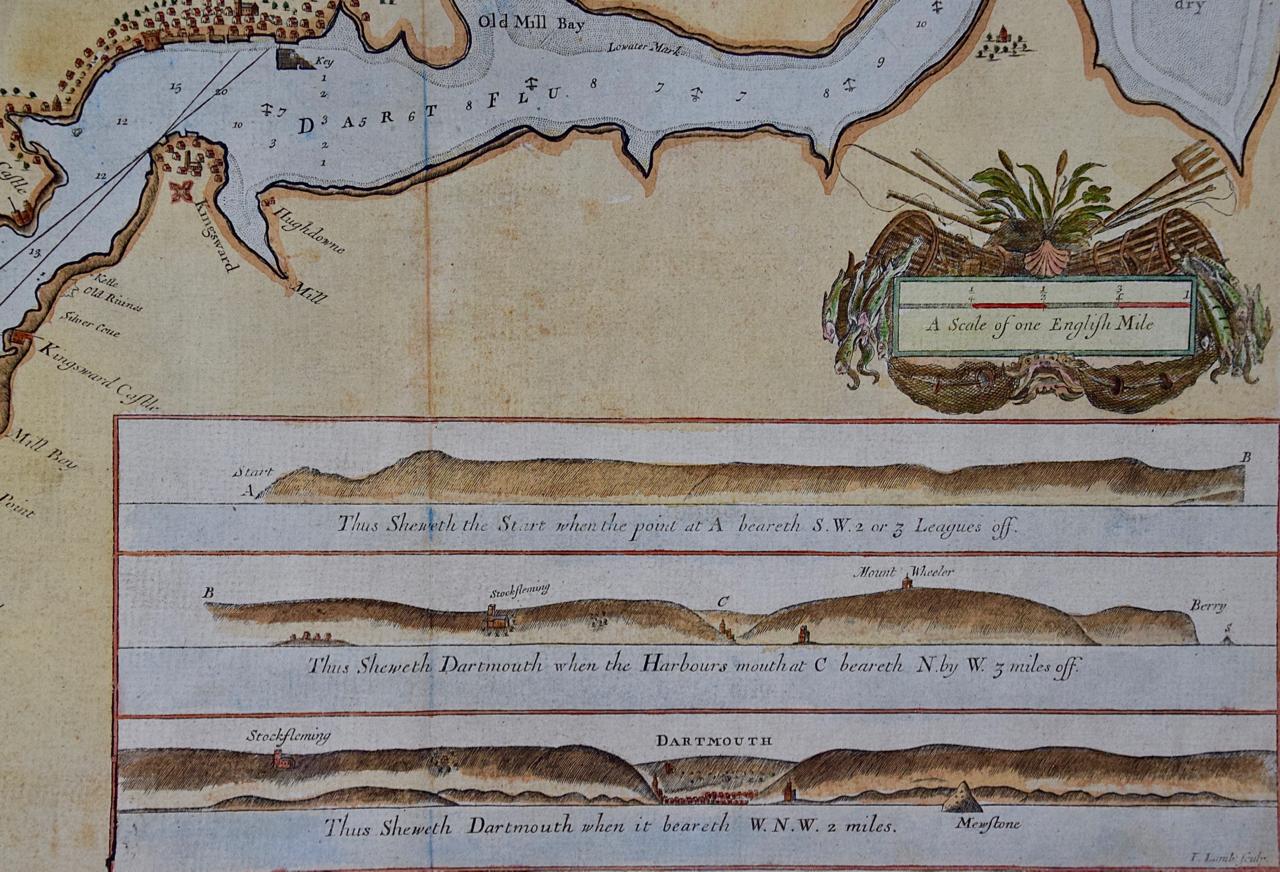 Old Mill Bay
Lowater Mark
dry
Key
10
9
8
7
7
8
8
15
20
12
10
7
3
1
2
3
2
1
5
6
DART FLU.
12
13
Castle
Kingsward
Hughdowne
Mill
Kettle
Old Ruines
Silver Coue
Kingsward Castle
Mill Bay
Point
1/4 1/2 3/4 1
A Scale of one English Mile
Start
A
B
Thus Sheweth the Start when the point at A beareth S.W. 2 or 3 Leagues off.
B
Stockfleming
C
Mount Wheeler
Berry
S
Thus Sheweth Dartmouth when the Harbours mouth at C beareth N. by W. 3 miles off.
Stockfleming
DARTMOUTH
Mewstone
Thus Sheweth Dartmouth when it beareth W.N.W. 2 miles.
Lamb Sculp.